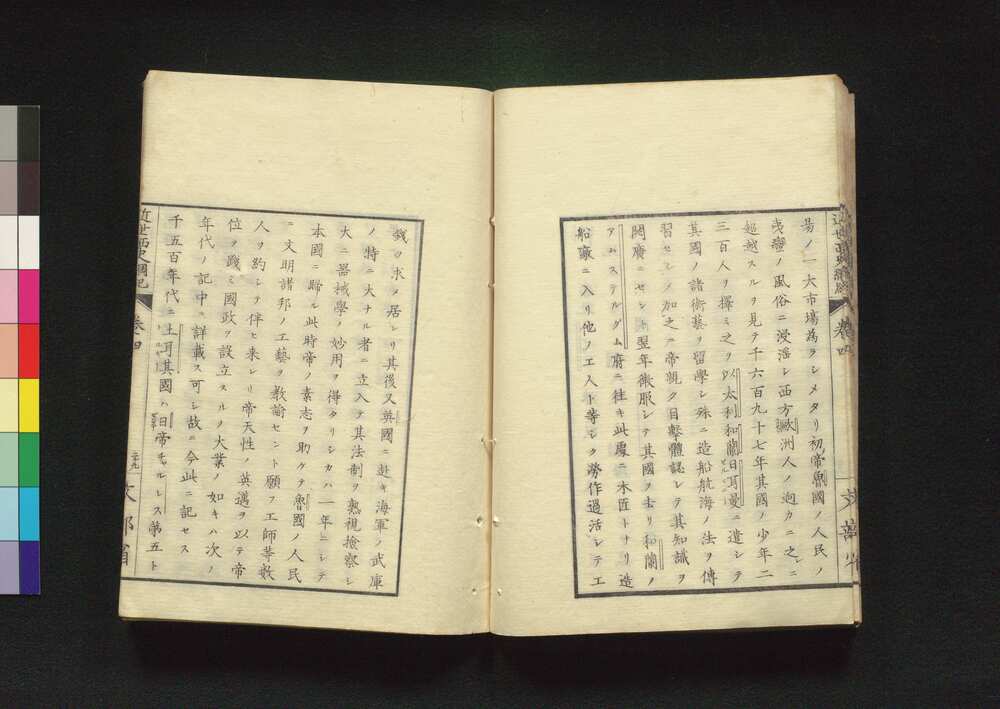 易ノ一大市塲為ラシメタリ初帝魯國ノ人民ノ
夷蠻ノ風俗ニ浸淫シ西方歐洲人ノ逈カニ之ニ
超越スルヲ見テ千六百九十七年其國ノ少年二
三百人ヲ擇ミ之ヲ以太利和蘭日耳曼ニ遣シテ
其國ノ諸術藝ヲ留學シ殊ニ造船航海ノ法ヲ傳
習セシメ加之帝親ク目擊體認シテ其知識ヲ
開廣ニセント翌年微服シテ其國ヲ去リ和蘭ノ
アムステルダム府ニ往キ此處ニ木匠トナリ造
船廠ニ入リ他ノ工人ト等シク勞作過活シテ工
錢ヲ求メ居レリ其後又英國ニ赴キ海軍ノ武庫
ノ特ニ大ナル者ニ立入テ其法制ヲ熟視撿察シ
大ニ器械學ノ妙用ヲ得タリシカハ一年ニシテ
本國ニ歸ル此時帝ノ素志ヲ助ケテ魯國ノ人民
ニ文明諸邦ノ工藝ヲ教諭セント願フ工師等數
人ヲ約シテ伴ヒ来レリ帝天性ノ英邁ヲ以テ帝
位ヲ踐ミ國政ヲ設立スルノ大業ノ如キハ次ノ
年代ノ記中ニ詳載ス可シ故ニ今此ニ記セス
千五百年代ニ土耳其國ハ日帝チャルレス第五ト
近世西史綱紀
卷四
二十九
文部省